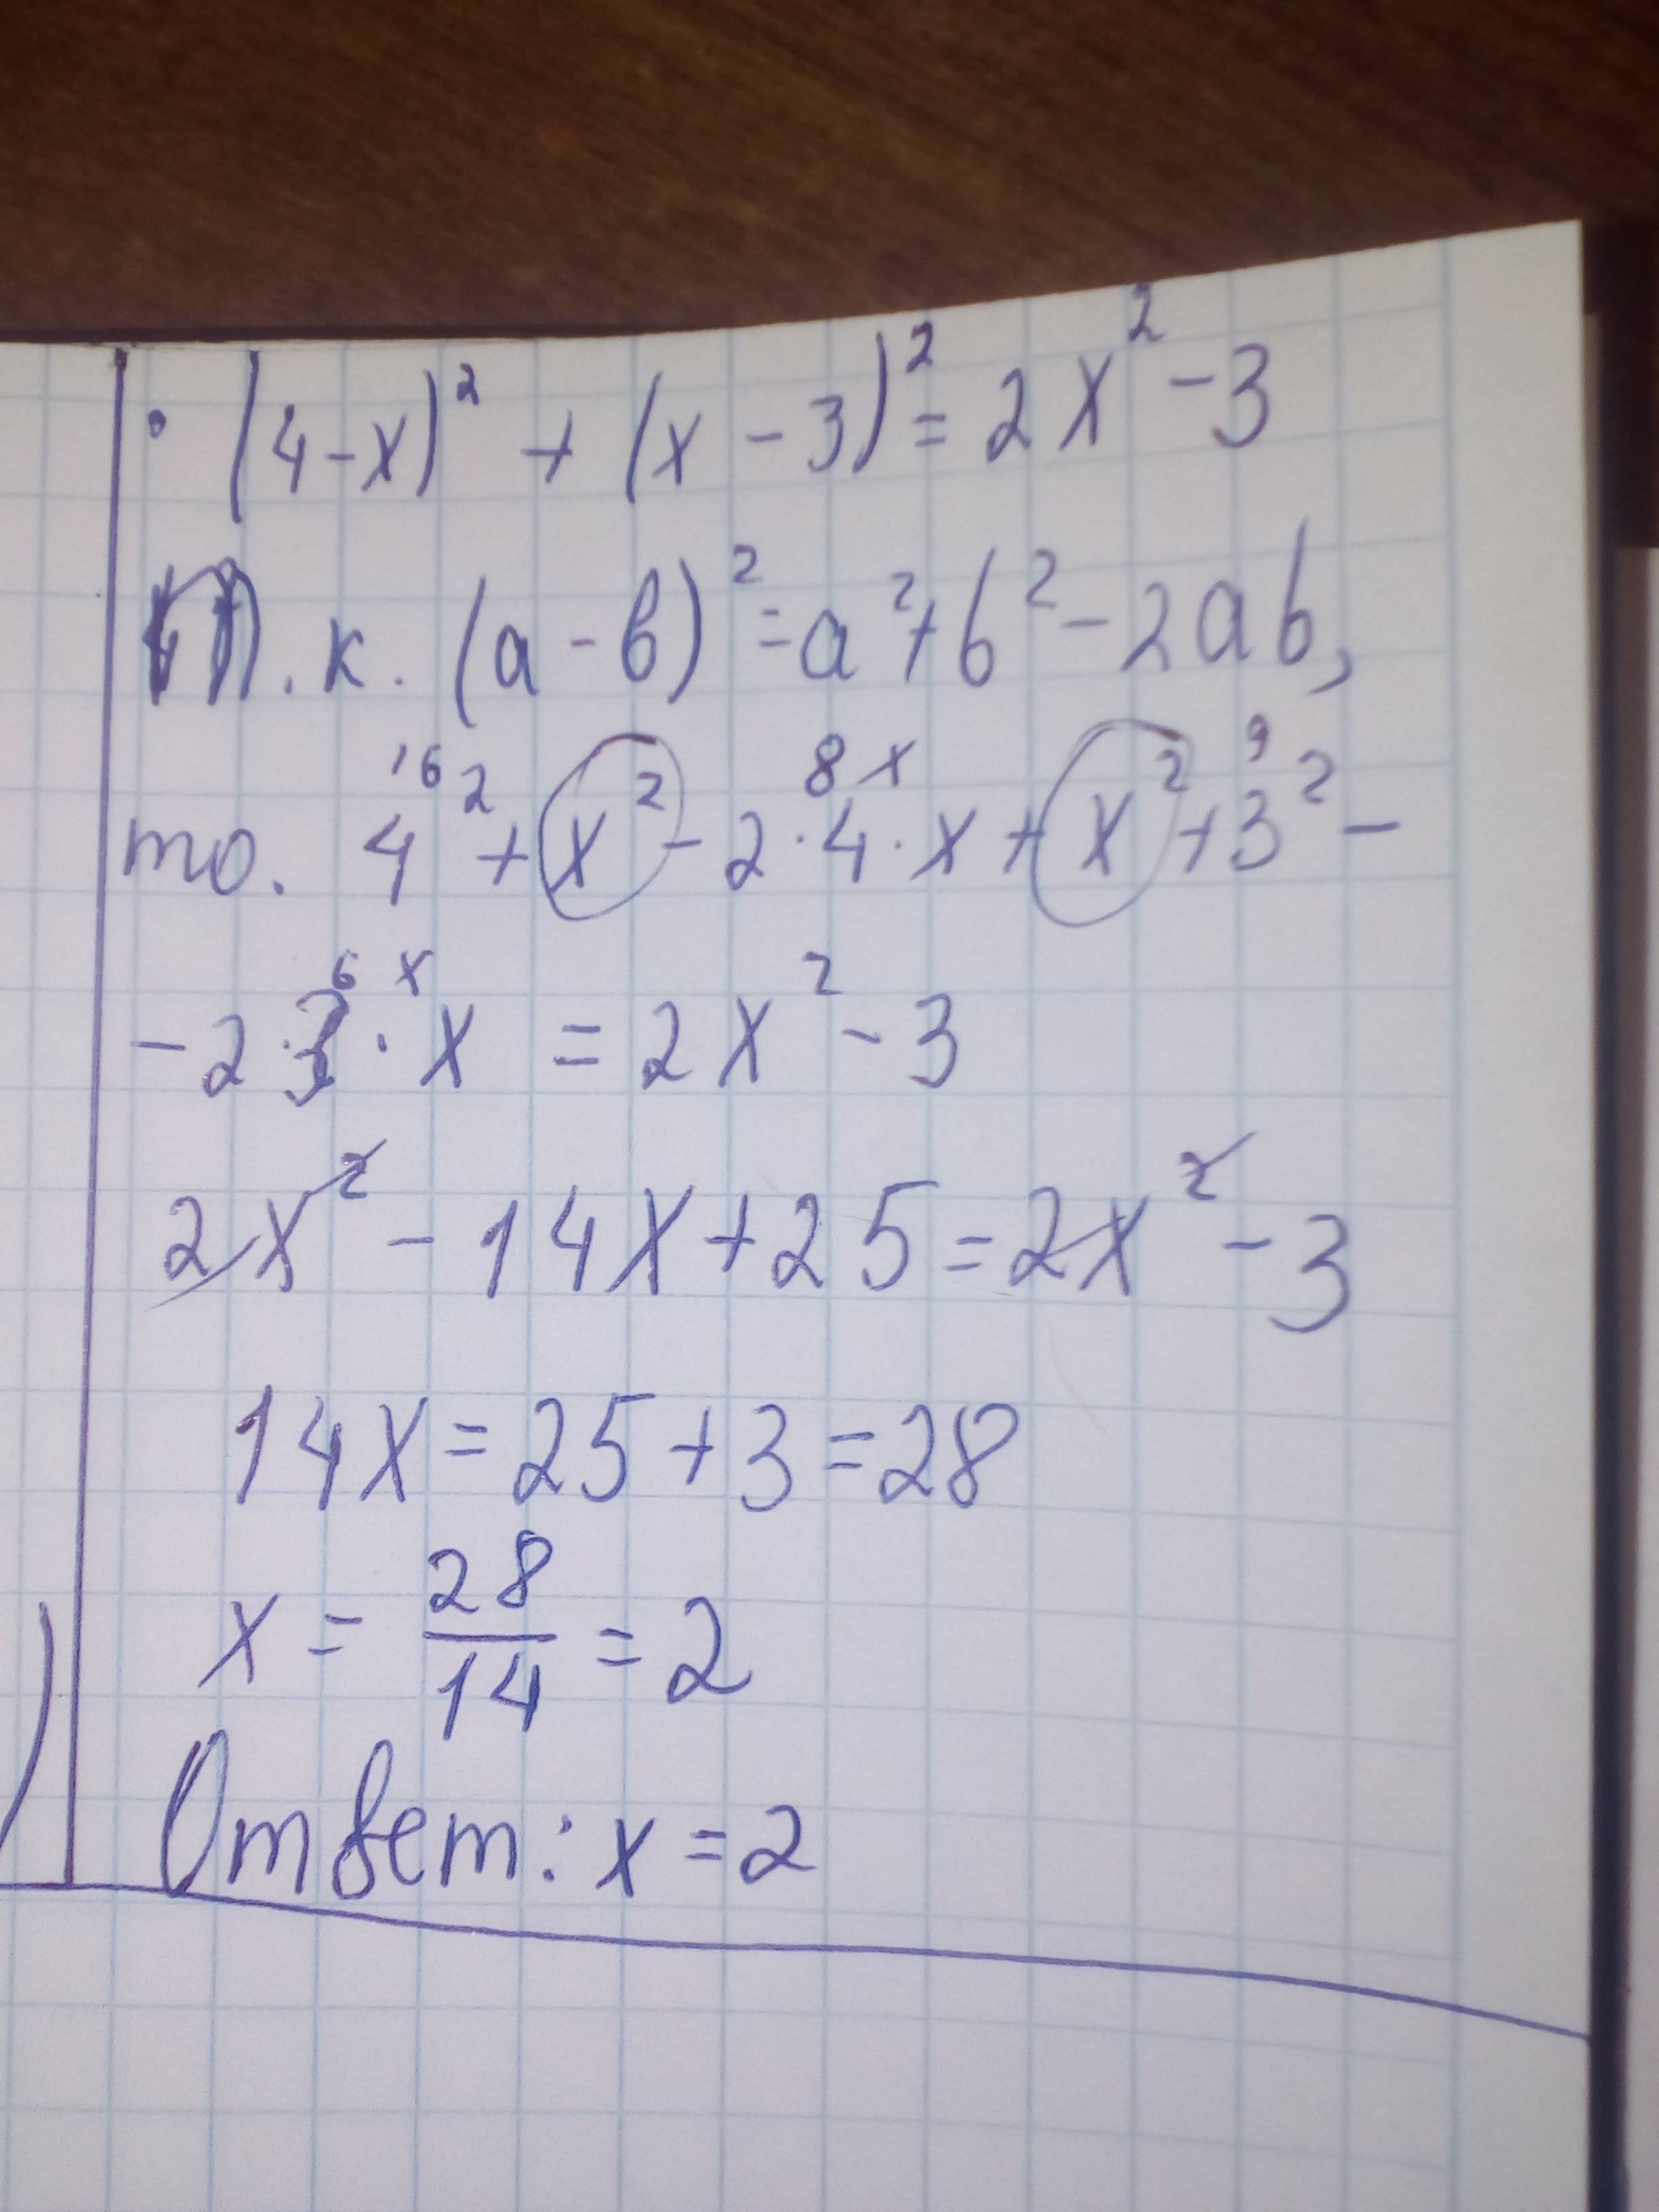 · (4-x)² + (x-3)² = 2x² - 3
Т.к. (a-b)² = a² + b² - 2ab,
16 8x 9
то. 4² + x² - 2·4·x + x² + 3² -
6 x
- 2·3·x = 2x² - 3
2x² - 14x + 25 = 2x² - 3
14x = 25 + 3 = 28
x = 28/14 = 2
Ответ: x = 2